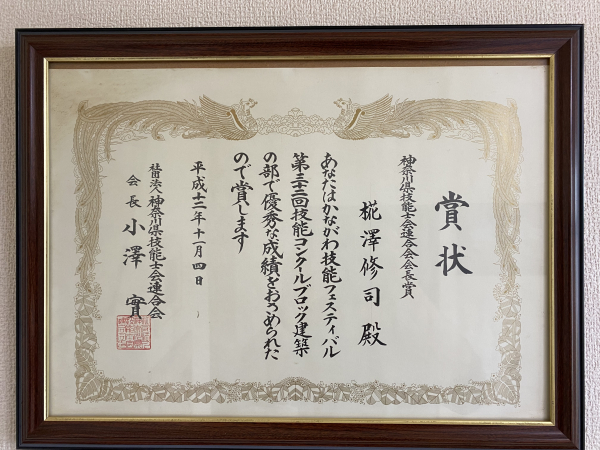 賞状
神奈川県技能士会連合会会長賞
椛澤修司殿
あなたはかながわ技能フェスティバル
第三十二回技能コンクールブロック建築
の部で優秀な成績をおさめられた
ので賞します
平成十二年十一月四日
社団法人神奈川県技能士会連合会
会長小澤實